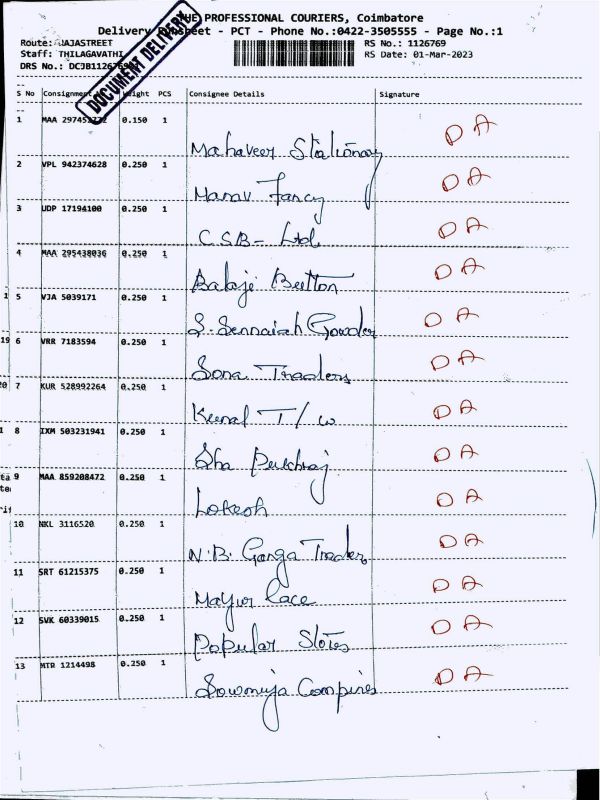 THE PROFESSIONAL COURIERS, Coimbatore
Delivery Runsheet - PCT - Phone No.:0422-3505555 - Page No.:1
Route: RAJASTREET
RS No.: 1126769
Staff: THILAGAVATHI
RS Date: 01-Mar-2023
DRS No.:
DOCUMENT DELIVERY
S No Consignment Weight PCS Consignee Details Signature
1 MAA 0.150 1 Mahaveer Stationary DA
2 VPL 942374628 0.250 1 Manav Fancy DA
3 UDP 17194100 0.250 1 C.S.B- Ltd DA
4 MAA 295438036 0.250 1 Balaji Button DA
5 VJA 5039171 0.250 1 S. Sennaiah Gowder DA
6 VRR 7183594 0.250 1 Sona Traders DA
7 KUR 528992264 0.250 1 Kunal T/w DA
8 IXM 503231941 0.250 1 Sha DA
9 MAA 859208472 0.250 1 Lokesh DA
10 NKL 3116520 0.250 1 N.B. Ganga Traders DA
11 SRT 61215375 0.250 1 Mayur Lace DA
12 SVK 60339015 0.250 1 Popular Stores DA
13 MTR 1214498 0.250 1 Sowmiya DA